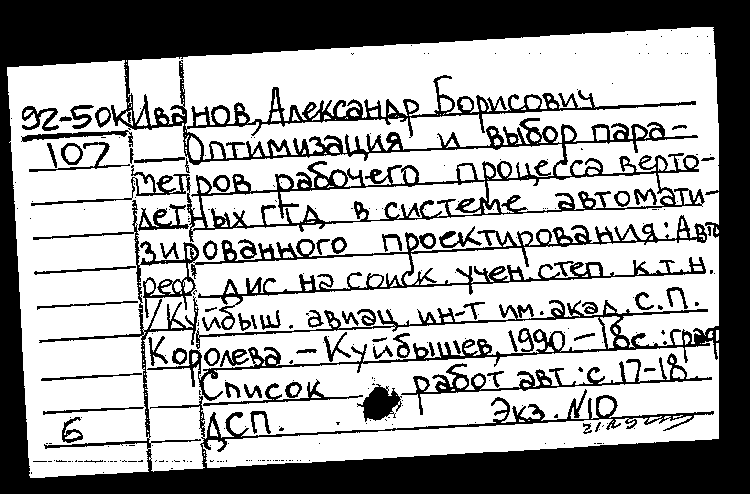 92-50к Иванов, Александр Борисович
107 Оптимизация и выбор пара-
метров рабочего процесса верто-
летных ГТД в системе автомати-
зированного проектирования: Авто
реф дис. на соиск. учен. степ. к.т.н.
/Куйбыш. авиац. ин-т им. акад. С.П.
Королева. – Куйбышев, 1990. – 18с.: граф
Список работ авт.: с. 17-18
Б ДСП. Экз. N10